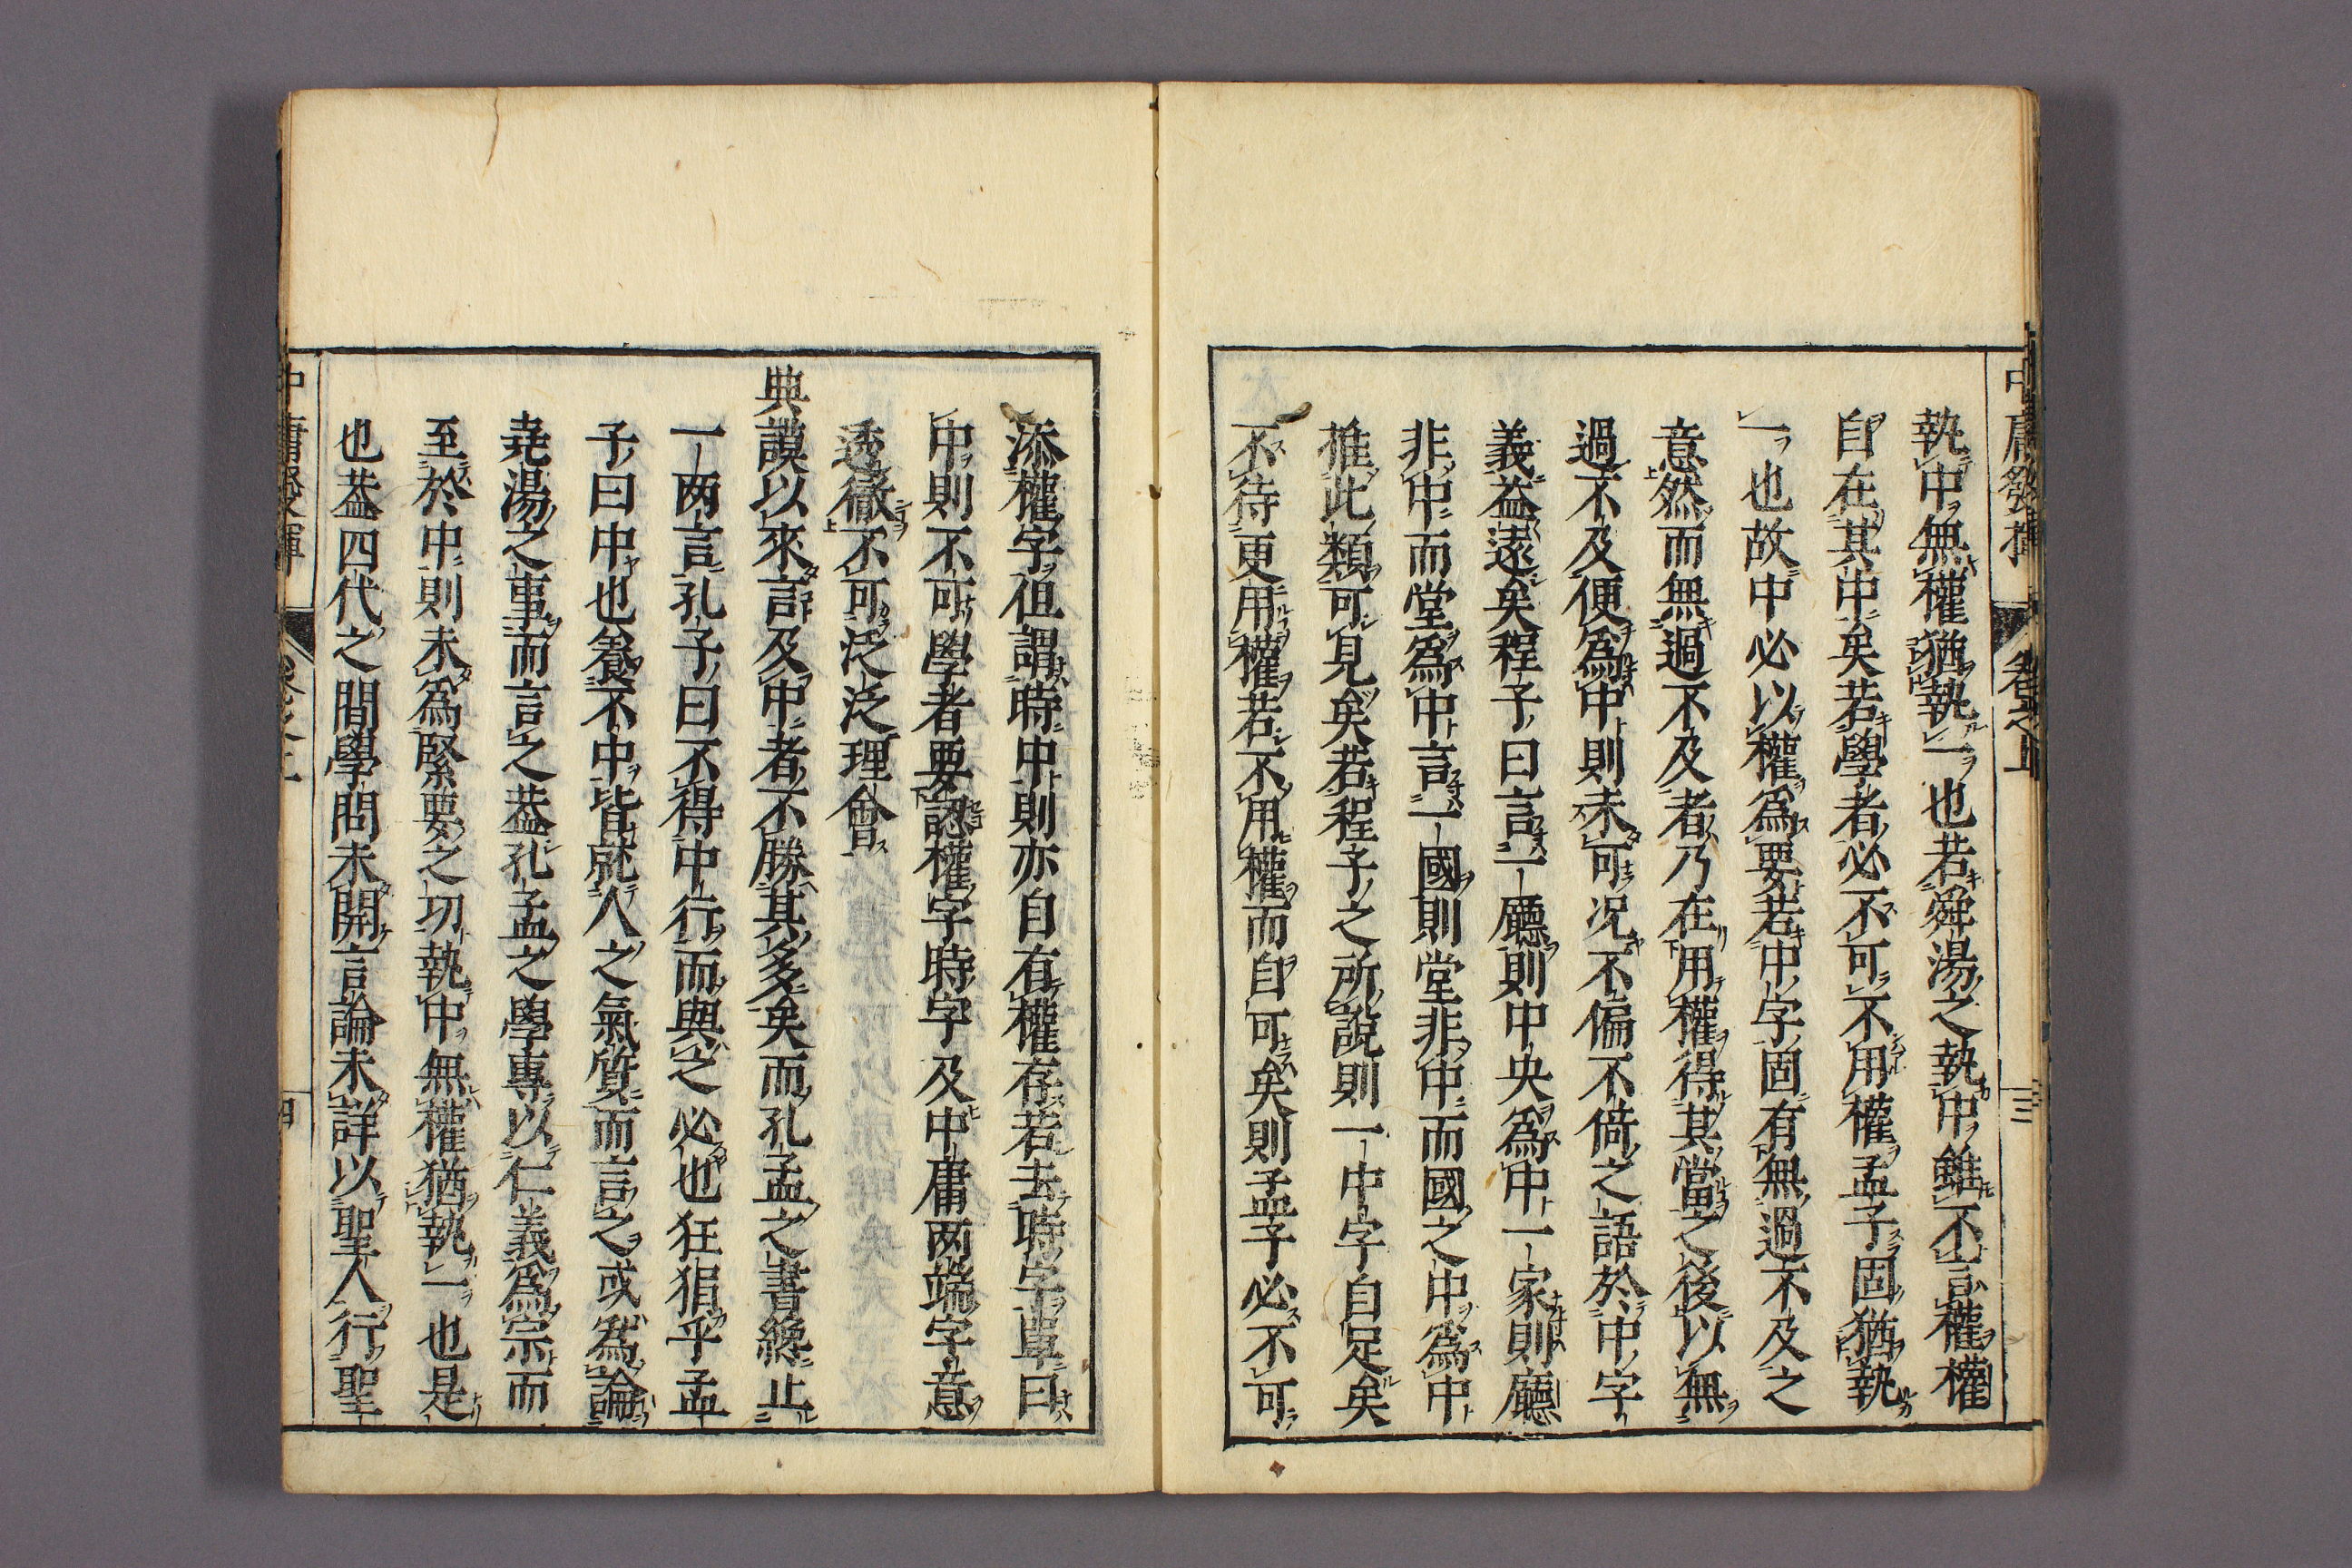 執中無權猶執一也若舜湯之執中雖不言權權
自在其中矣若學者必不可不用權孟子固猶執
一也故中必以權爲要若中字固有無過不及之
意然而無過不及者乃在用權得其當之後以無
過不及便爲中則未可况不偏不倚之語於中字
義益遠矣程子曰言一廳則中央爲中一家則廳
非中而堂爲中言一國則堂非中而國之中爲中
推此類可見矣若程子之所說則一中字自足矣
不待更用權若不用權而自可矣則孟子必不可
添權字但謂時中則亦自有權存若去時字單曰
中則不可學者要認權字時字及中庸两端字意
透徹不可泛泛理會
典謨以來言及中者不勝其多矣而孔孟之書纔止
一两言孔子曰不得中行而與之必也狂狷乎孟
子曰中也養不中皆就人之氣質而言之或爲論
堯湯之事而言之葢孔孟之學專以仁義爲宗而
至於中則未爲緊要之切執中無權猶執一也是
也葢四代之間學問未開言論未詳以聖人行聖